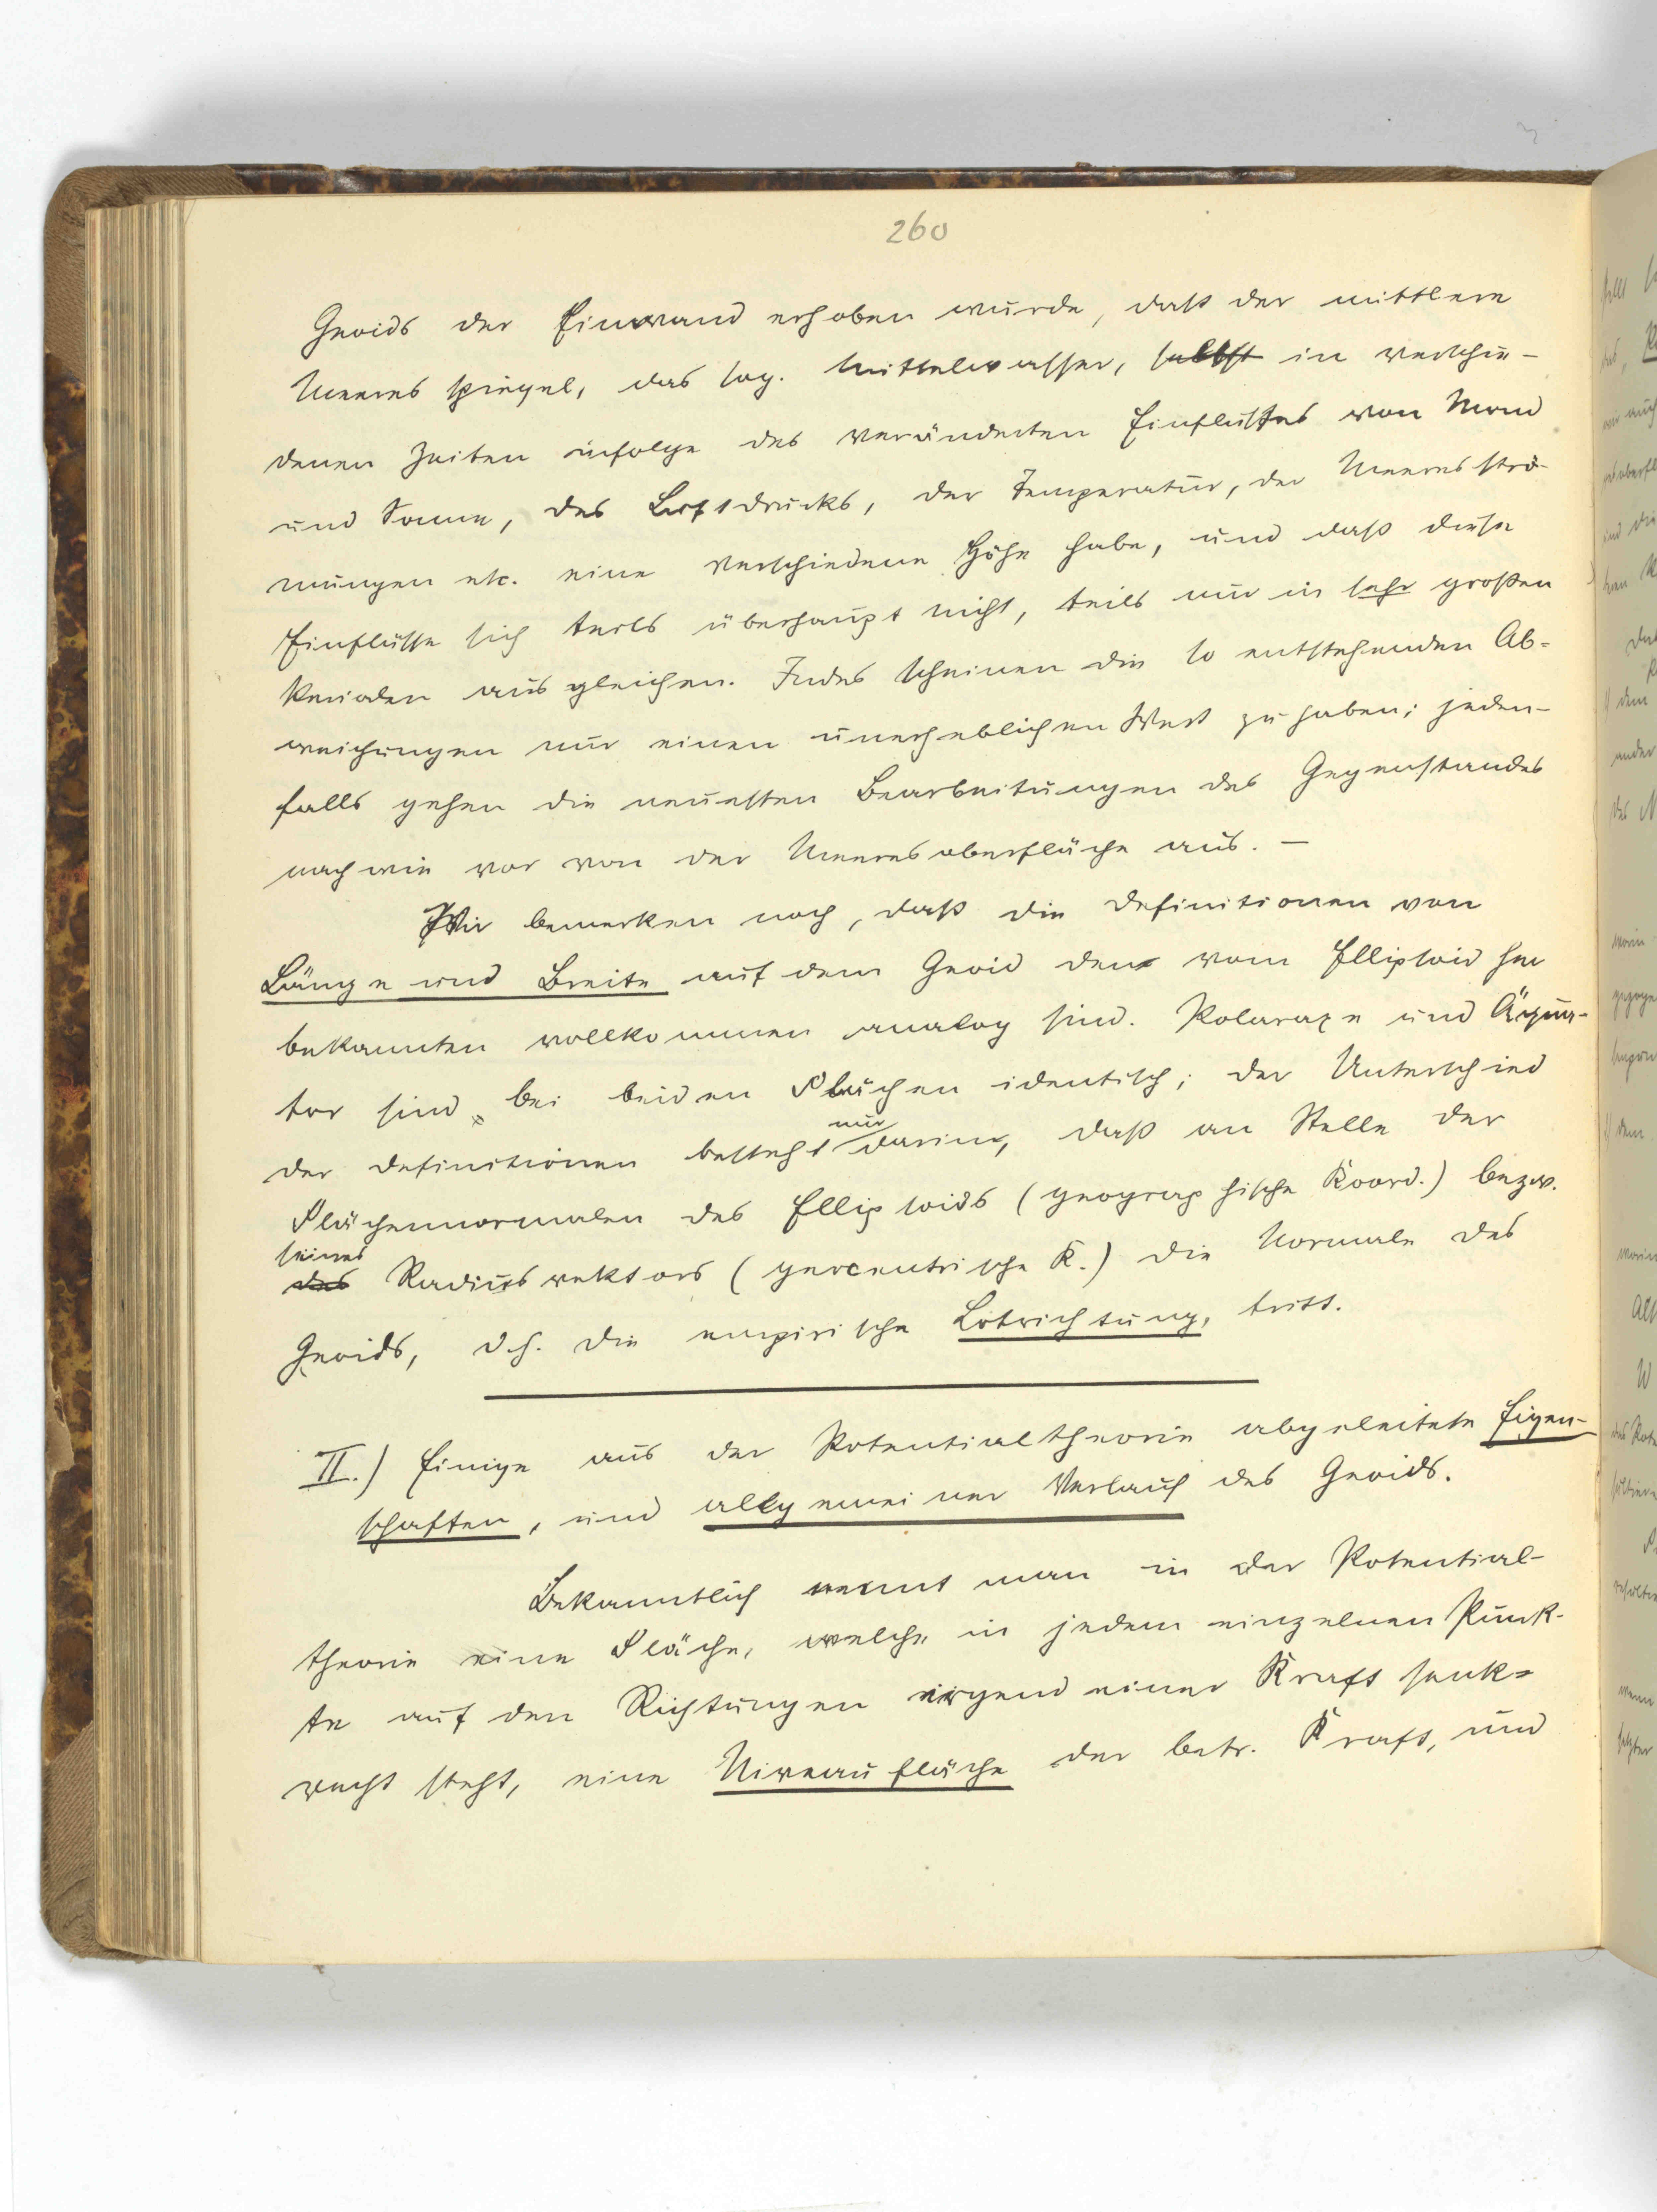 260
Geoids der Einwand erhoben wurde, daß der mittlere
Meeresspiegel, das sog. Mittelwasser, selbst in verschie-
denen Zeiten infolge des veränderten Einflusses von Mond
und Sonne, des Luftdrucks, der Temperatur, der Meeresströ-
mungen etc. eine verschiedene Höhe habe, und daß diese
Einflüsse sich teils überhaupt nicht, teils nur in sehr großen
Perioden ausgleichen. Indes scheinen die so entstehenden Ab-
weichungen nur einen unerheblichen Wert zu haben; jeden-
falls gehen die neuesten Bearbeitungen des Gegenstandes
nach wie vor von der Meeresoberfläche aus. —
Wir bemerken noch, daß die Definitionen von
Länge und Breite auf dem Geoid den vom Ellipsoid her
bekannten vollkommen analog sind. Polaraxe und Äqua-
tor sind bei beiden Flächen identisch; der Unterschied
der Definitionen besteht nur darin, daß an Stelle der
Flächennormalen des Ellipsoids (geographische Koord.) bezw.
seines
des Radiusvektors (geocentrische K.) die Normale des
Geoids, d.h. die empirische Lotrichtung, tritt.
II.) Einige aus der Potentialtheorie abgeleitete Eigen-
schaften, und allgemeiner Verlauf des Geoids.
Bekanntlich nennt man in der Potential-
theorie eine Fläche, welche in jedem einzelnen Punk-
te auf den Richtungen irgend einer Kraft senk-
recht steht, eine Niveaufläche der betr. Kraft, und